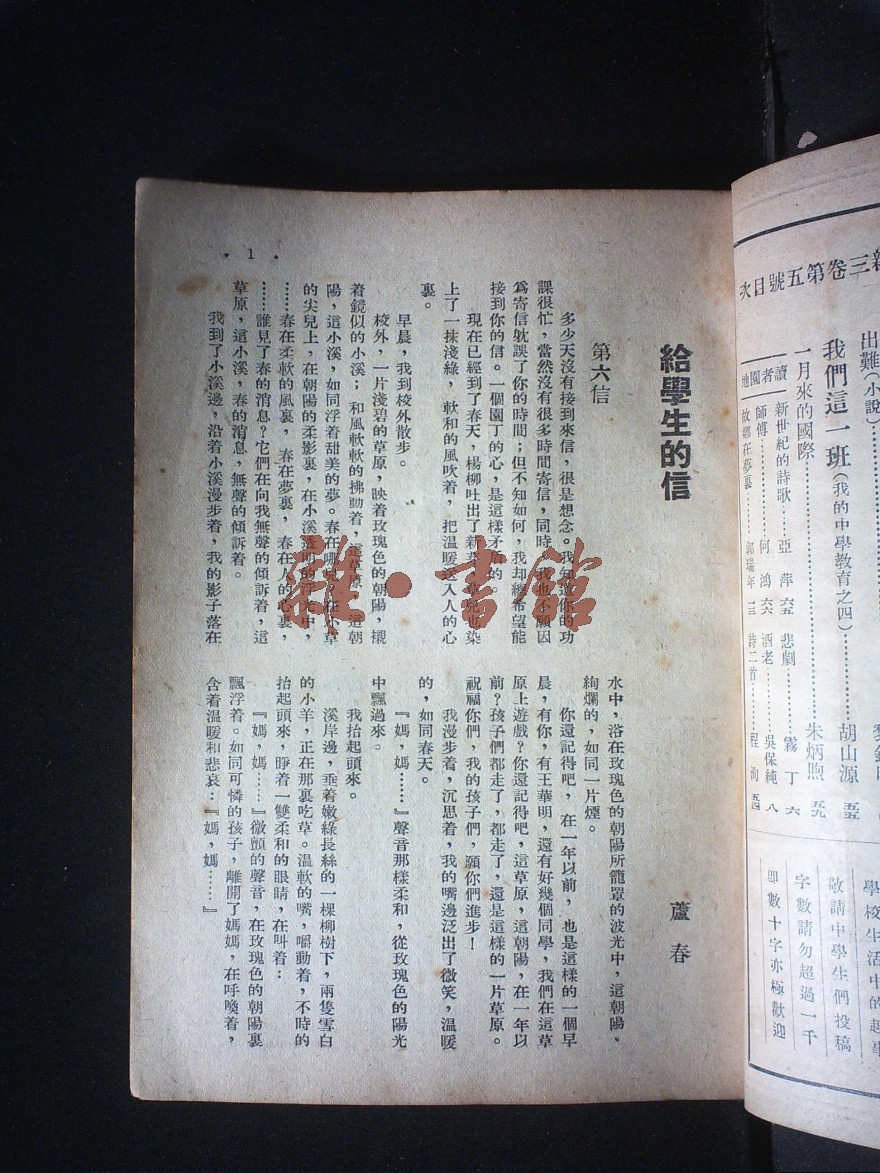 給學生的信
蘆春
第六信
多少天沒有接到來信，很是想念。我知道你的功
課很忙，當然沒有很多時間寄信，同時，我也不願因
爲寄信躭誤了你的時間；但不知如何，我却總希望能
接到你的信。一個園丁的心，是這樣矛盾的。
現在已經到了春天，楊柳吐出了新葉，草兒也染
上了一抹淺綠，軟和的風吹着，把溫暖送入人的心
裏。
早晨，我到校外散步。
校外，一片淺碧的草原，映着玫瑰色的朝陽，襯
着鏡似的小溪；和風軟軟的拂動着，這草原，這朝
陽，這小溪，如同浮着甜美的夢。春在哪兒？在小草
的尖兒上，在朝陽的柔影裏，在小溪透明的浮光中，
……春在柔軟的風裏，春在夢裏，春在人的心裏，
……誰見了春的消息？它們在向我無聲的傾訴着，這
草原，這小溪，春的消息，無聲的傾訴着。
我到了小溪邊，沿着小溪漫步着，我的影子落在
水中，浴在玫瑰色的朝陽所籠罩的波光中，這朝陽，
絢爛的，如同一片煙。
你還記得吧，在一年以前，也是這樣的一個早
晨，有你，有王華明，還有好幾個同學，我們在這草
原上遊戲？你還記得吧，這草原，這朝陽，在一年以
前？孩子們都走了，都走了，還是這樣的一片草原。
祝福你們，我的孩子們，願你們進步！
我漫步着，沉思着，我的嘴邊泛出了微笑，溫暖
的，如同春天。
『媽，媽……』聲音那樣柔和，從玫瑰色的陽光
中飄過來。
我抬起頭來。
溪岸邊，垂着嫩綠長絲的一棵柳樹下，兩隻雪白
的小羊，正在那裏吃草。溫軟的嘴，嚼動着，不時的
抬起頭來，睜着一雙柔和的眼睛，在叫着：
『媽，媽……』微顫的聲音，在玫瑰色的朝陽裏
飄浮着。如同可憐的孩子，離開了媽媽，在呼喚着，
含着溫暖和悲哀：『媽，媽……』
• 1 •
雜•書館
三卷第五號目次
出難（小說）
我們這一班（我的中學教育之四）……胡山源 五五
一月來的國際……朱炳煦 五九
讀者園地
新世紀的詩歌……亞萍 六五
悲劇……霧丁 六
師傅……何鴻 六六
酒老……吳保純 八
故鄉在夢裏……郭瑞年 一三
詩二首……程洵 五四
學校生活中的趣事
敬請中學生們投稿
字數請勿超過一千
即數十字亦極歡迎